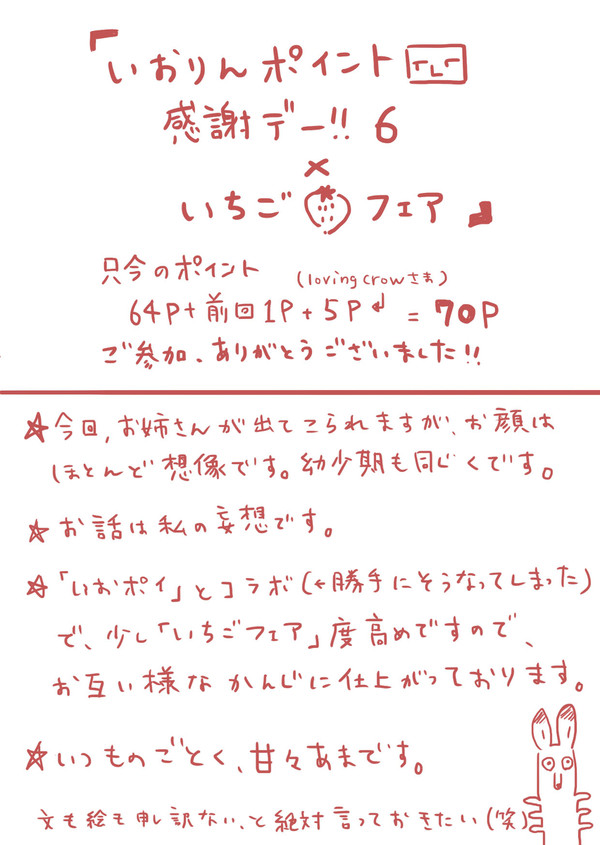 『いおりんポイント TLT
感謝デー!! 6
×
いちご フェア』
只今のポイント (lovingcrowさま)
64P+前回1P+5P↲ = 70P
ご参加、ありがとうございました!!
☆今回、お姉さんが出てこられますが、お顔は
ほとんど想像です。幼少期も同じくです。
☆お話は私の妄想です。
☆「いおポイ」とコラボ(←勝手にそうなってしまった)
で、少し「いちごフェア」度高めですので、
お互い様なかんじに仕上がっております。
☆いつものごとく、甘々あまです。
文も絵も申し訳ない、と絶対言っておきたい(笑)